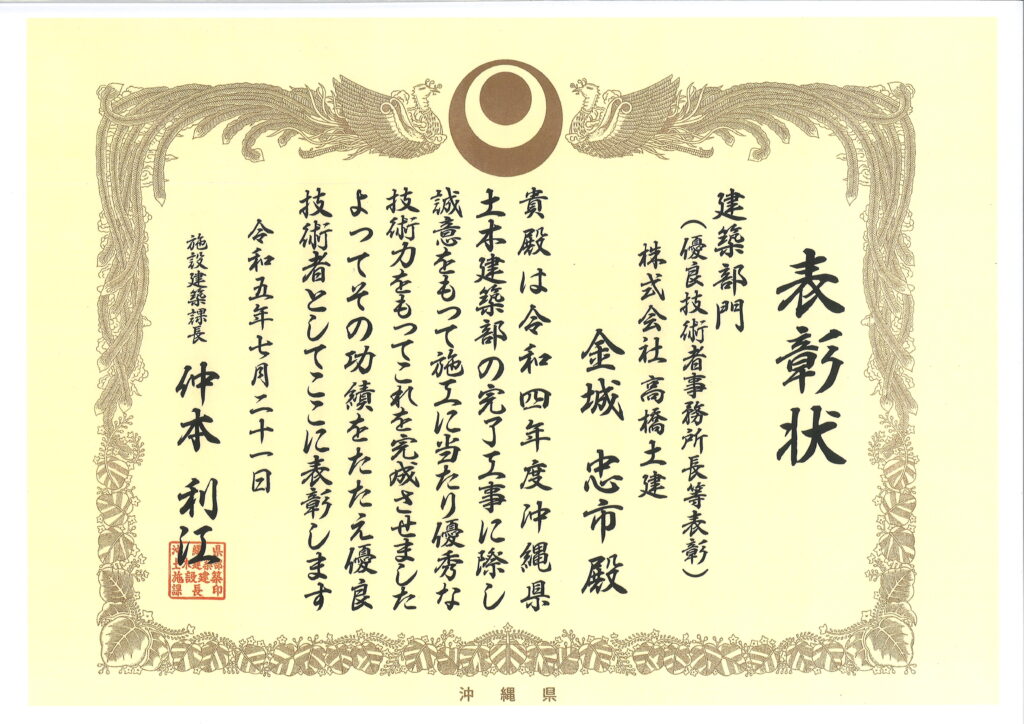 表彰状
建築部門
（優良技術者事務所長等表彰）
株式会社 高橋土建
金城 忠市 殿
貴殿は令和四年度沖縄県
土木建築部の完了工事に際し
誠意をもって施工に当たり優秀な
技術力をもってこれを完成させました
よってその功績をたたえ優良
技術者としてここに表彰します
令和五年七月二十一日
施設建築課長 仲本 利江
沖縄県